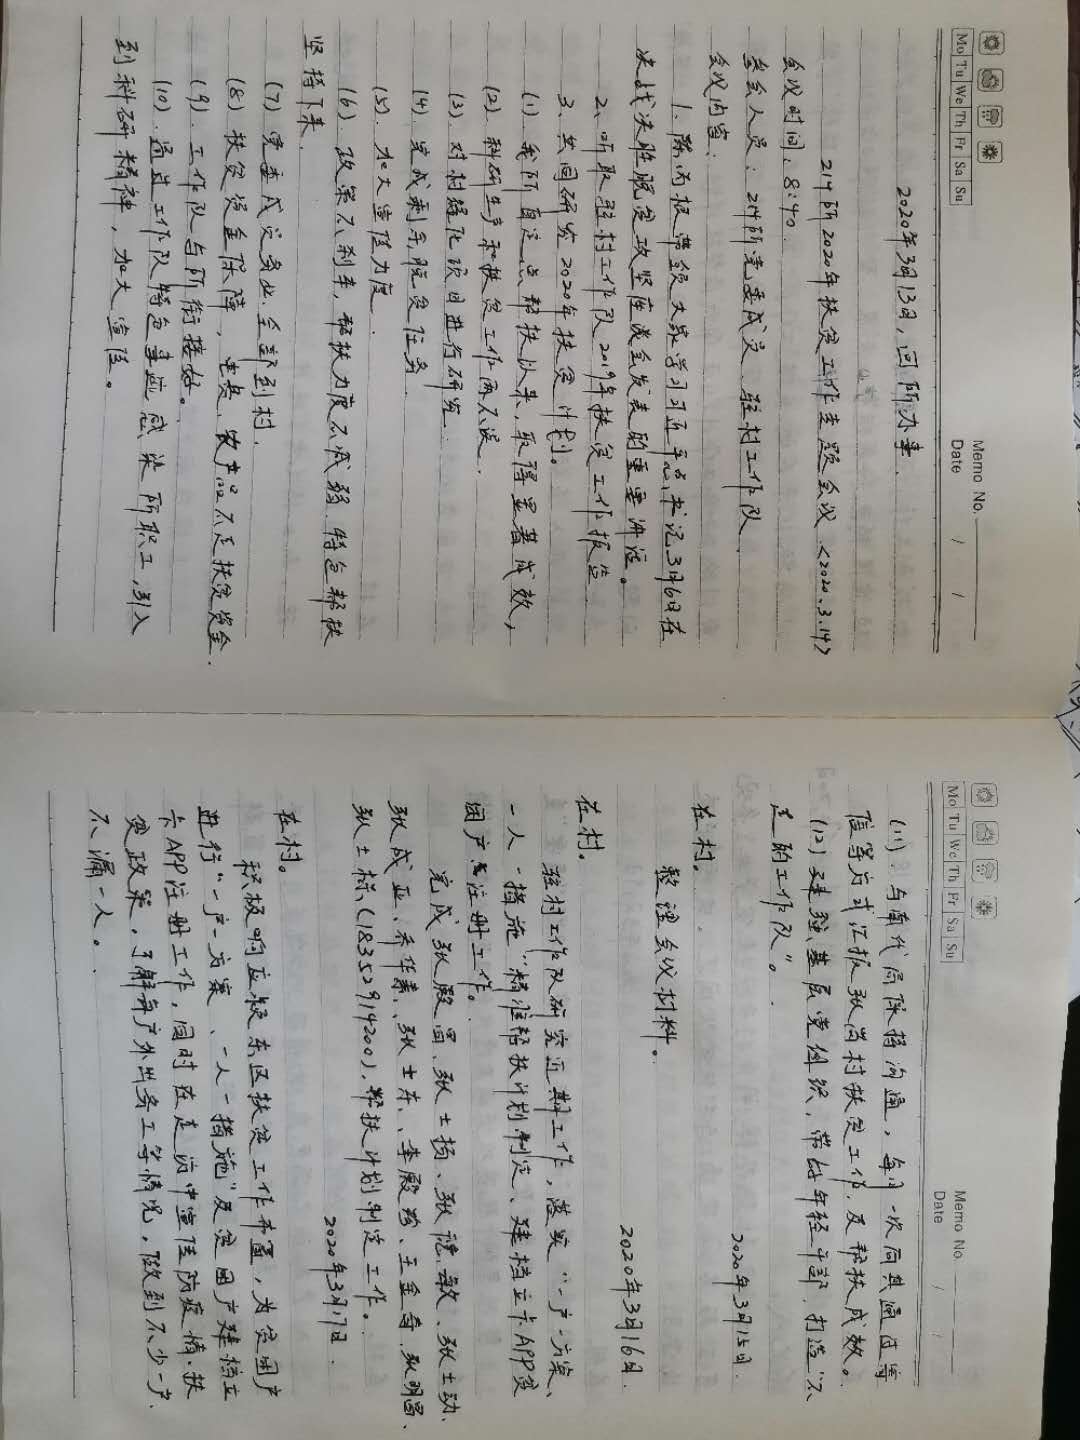 Mo Tu We Th Fr Sa Su
Memo No.
Date / /
2020年3月13日,回所办事.
214所2020年扶贫工作专题会议<2020.3.14>
会议时间:8:40.
参会人员:214所党委成员、驻村工作队.
会议内容:
1.陈丙根带领大家学习习近平总书记3月6日在
决战决胜脱贫攻坚座谈会发表的重要讲话。
2、听取驻村工作队2019年扶贫工作报告
3、共同研究2020年扶贫计划。
(1)我所自定点帮扶以来、取得显著成效,
(2).科研生产和扶贫工作两不误.
(3).对村绿化项目进行研究.
(4)完成剩余脱贫任务.
(5).加大宣传力度.
(6).政策不刹车,帮扶力度不减弱 特色帮扶
坚持下来.
(7)党委成员务必全部到村.
(8)扶贫资金保障,走热农产品不是扶贫资金.
(9).工作队与所衔接好。
(10).通过工作队特色事迹感染所职工,引入
到科研精神,加大宣传。
Mo Tu We Th Fr Sa Su
Memo No.
Date / /
(11).与南代局保持沟通,每月一次向其通过等
信等方式汇报张尚村扶贫工作及帮扶成效。
(12)建强基层党组织,带好年轻干部,打造"不
走的工作队"。
2020年3月15日.
在村。
整理会议材料。
2020年3月16日.
在村。
驻村工作队研究近期工作,落实"一户一方案、
一人一措施"精准帮扶计划制定、建档立卡APP贫
困户注册工作。
完成张殿国、张士扬、张德敏、张士动、
张成亚、乔华素、张士东、李殿珍、王金奇、张明国、
张士标(18352914200).帮扶计划制定工作。
2020年3月17日.
在村。
积极响应颍东区扶贫工作布置,为贫困户
进行"一户一方案、一人一措施"及贫困户建档立
卡APP注册工作,同时在走访中宣传防疫情、扶
贫政策,了解每户外出务工等情况,做到不少一户.
不漏一人。